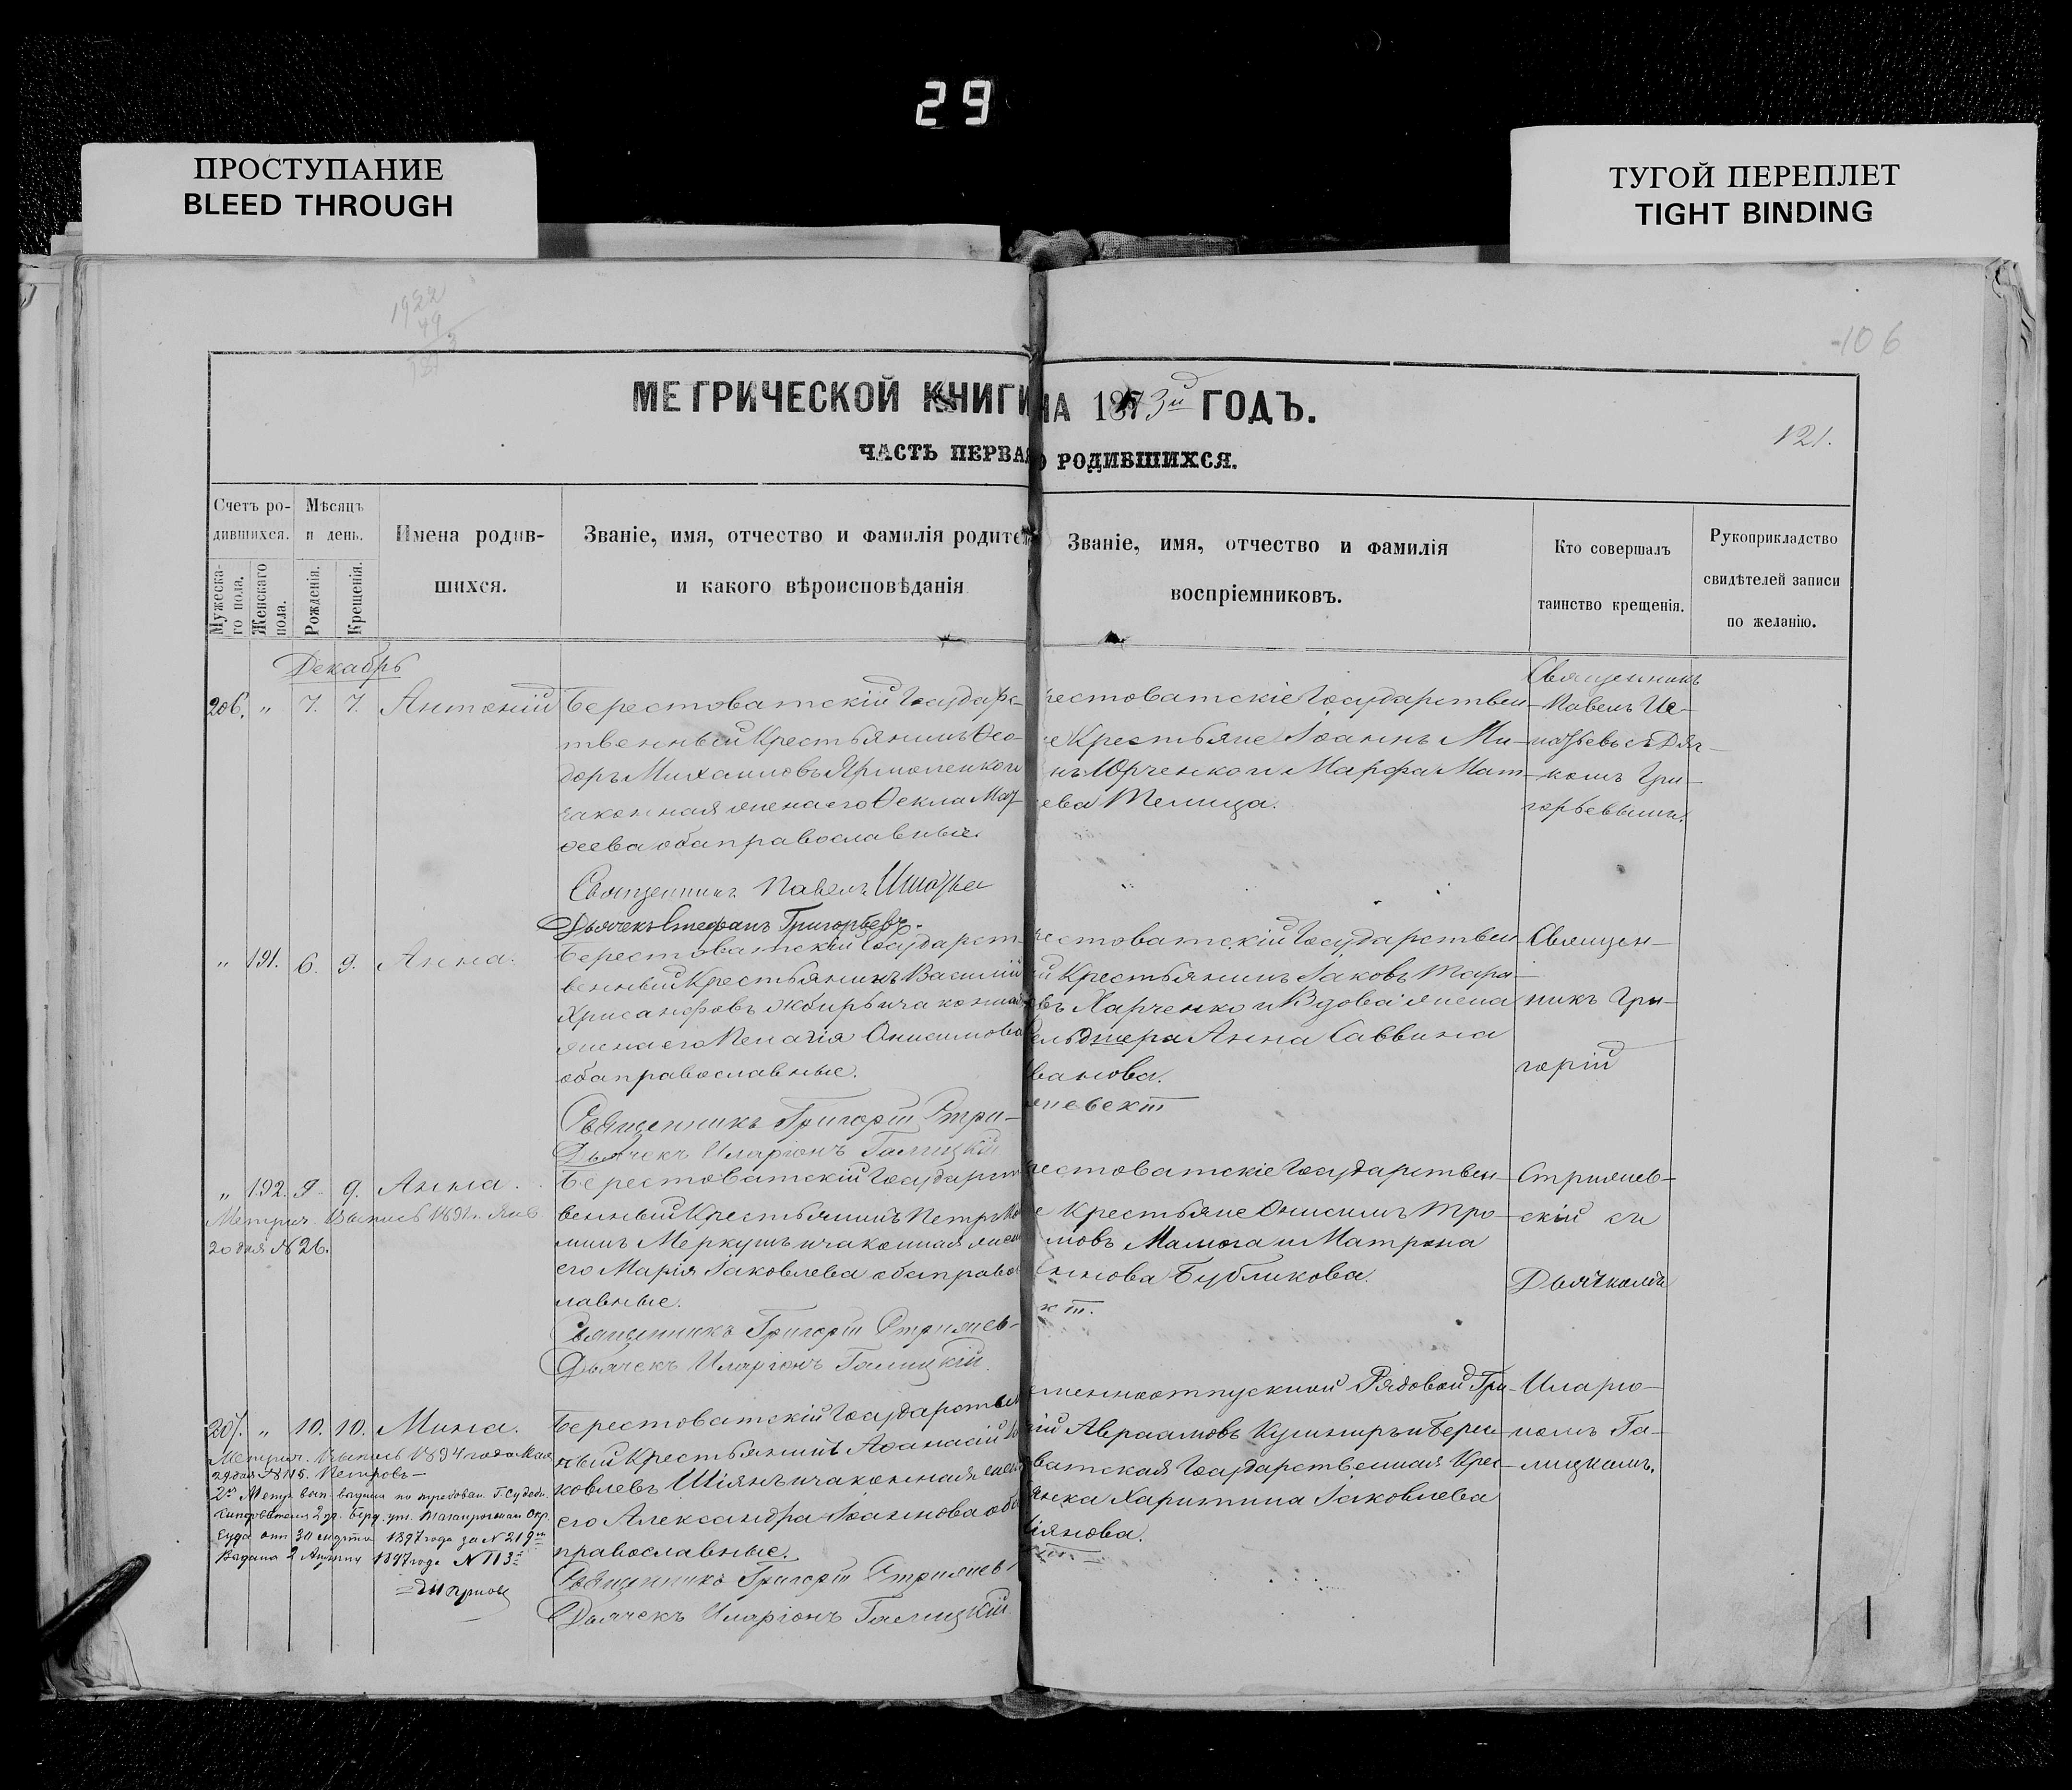 29
ПРОСТУПАНИЕ
BLEED THROUGH
ТУГОЙ ПЕРЕПЛЕТ
TIGHT BINDING
1922
49
106
МЕТРИЧЕСКОЙ КНИГИ НА 1873й ГОДЪ.
121.
ЧАСТЬ ПЕРВАЯ О РОДИВШИХСЯ.
Счетъ родившихся.
Мужескаго пола.
Женскаго пола.
Мѣсяцъ и день.
Рожденія.
Крещенія.
Имена родившихся.
Званіе, имя, отчество и фамилія родите
и какого вѣроисповѣданія
Званіе, имя, отчество и фамилія
воспріемниковъ.
Кто совершалъ
таинство крещенія.
Рукоприкладство
свидѣтелей записи
по желанію.
Декабрь
206. " 7. 7. Антоній
Берестоватскій Государс-
твенный Крестьянинъ Ѳео-
доръ Михаиловъ Ярмоленко и
законная жена его Ѳекла
обаправославные.
Священникъ Павелъ
Дьячекъ Стефанъ Григорьевъ.
рестоватскіе Государствен-
е Крестьяне Іоаннъ Ми-
нъ Юрченко и Марѳа Мат-
ева Телица.
Священникъ
Павелъ Иг-
натьевъ съ Дяч-
комъ Гри-
горьевымъ.
" 191. 6. 9. Анна.
Берестоватскій Государст-
венный Крестьянинъ Василій
Хрисанфовъ и законная
жена его Пелагія Онисимова
оба православные.
Священникъ Григорій Стри-
Дьячекъ Иларіонъ Галицкій
рестоватскій Государствен-
й Крестьянинъ Іаковъ Тара-
въ Харченко и Вдова жена
ельдшера Анна Саввина
ванова.
Священ-
никъ Гри-
горій
" 192. 9. 9. Анна.
Метрич. Выпись 1891 г. Янв.
20 дня № 26.
Берестоватскій Государст
венный Крестьянинъ Петръ
минъ Меркушъ и законная жена
его Марія Іаковлева обаправо
лавные.
Священникъ Григорій Стрижев-
Дьячекъ Иларіонъ Галицкій.
рестоватскіе Государствен-
е Крестьяне Онисимъ Тро-
мовъ Малюга и Матрона
Бубликова.
Стрижев-
скій съ
Дьячкомъ
207. " 10. 10. Мина.
Метрич. Выпись 1894 года Мая
29 дня № 115. Петровъ
Суда отъ 30 марта 1897 года за № 219
Выдана 2 Апрѣля 1897 года № 113
Берестоватскій Государствен
ный Крестьянинъ Аѳанасій
ковлевъ Шіянъ и законная жена
его Александра Іоаннова оба
православные.
Священникъ Григорій Стрижев
Дьячекъ Иларіонъ Галицкій.
еменноотпускной Рядовой Гри-
рій Авраамовъ Кушниръ и Берес-
ватская Государственная Крес-
янка Харитина Іаковлева
іянова.
Иларіо-
номъ Га-
лицкимъ.